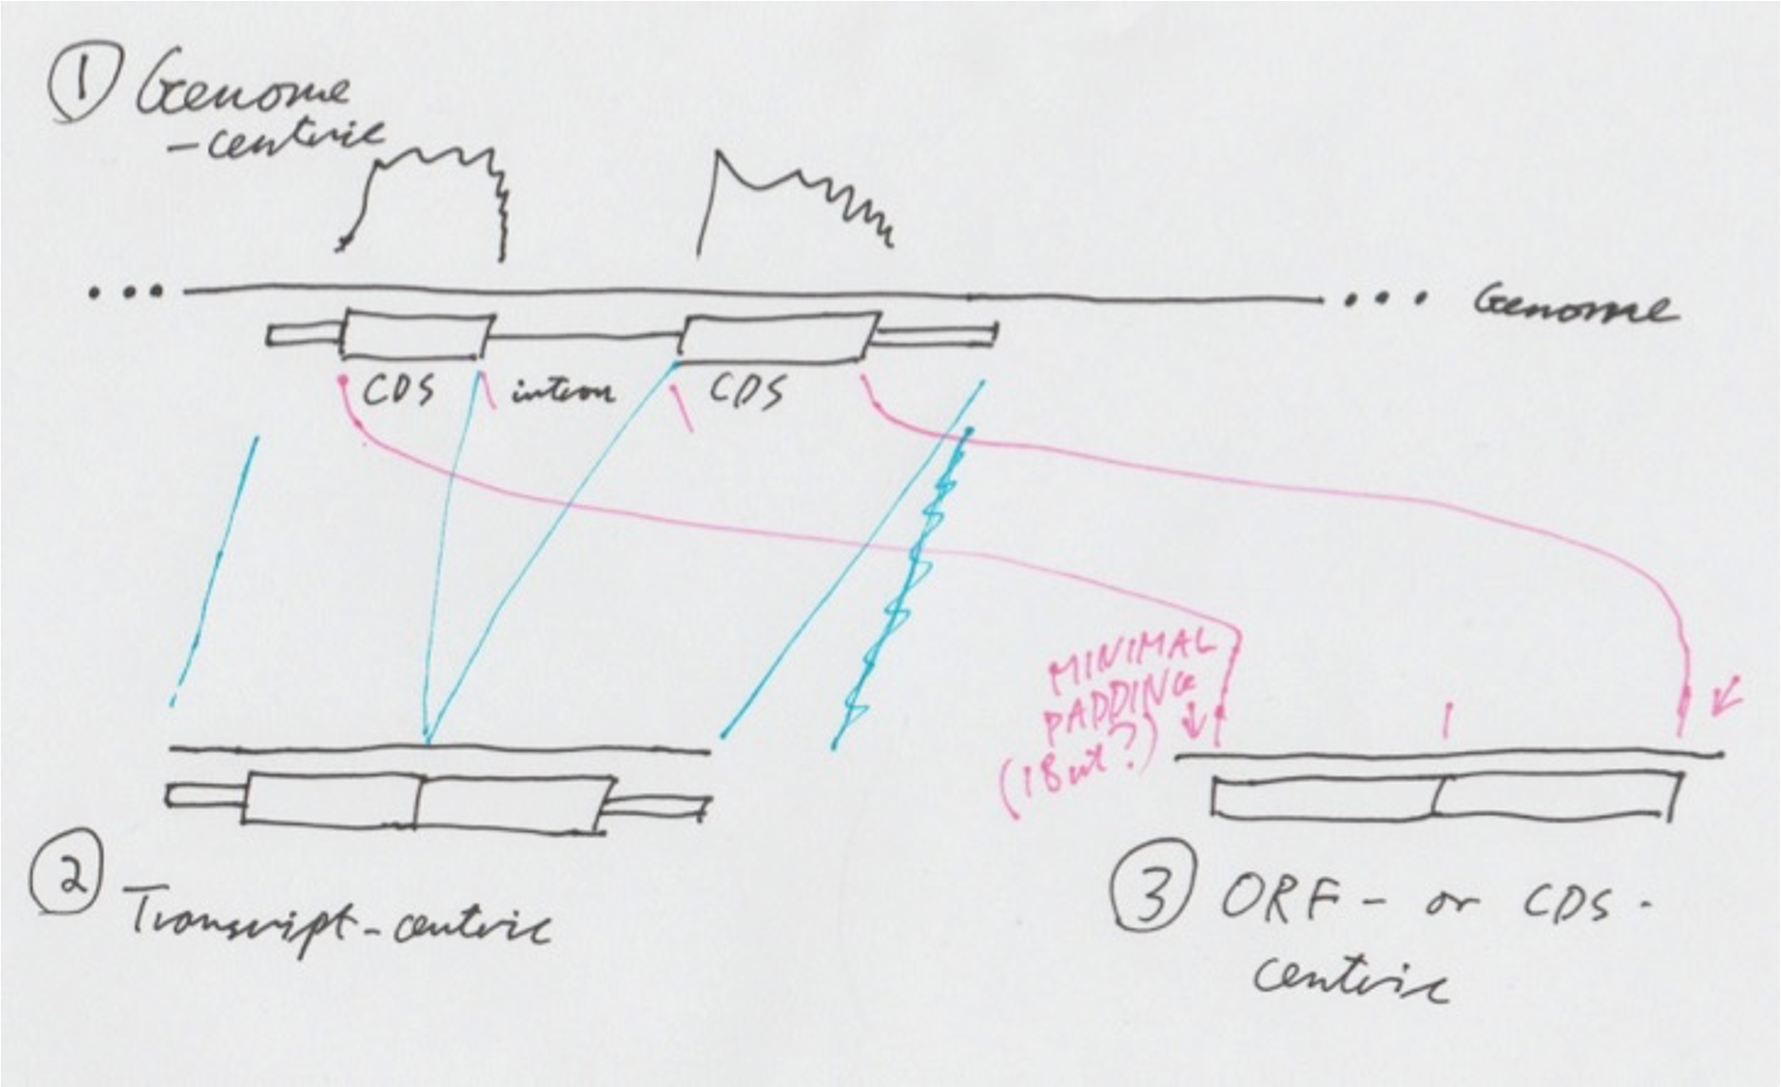 ① Genome
-centric
... ... Genome
CDS intron CDS
MINIMAL
PADDING
(18nt?)
② Transcript-centric
③ ORF- or CDS-
centric